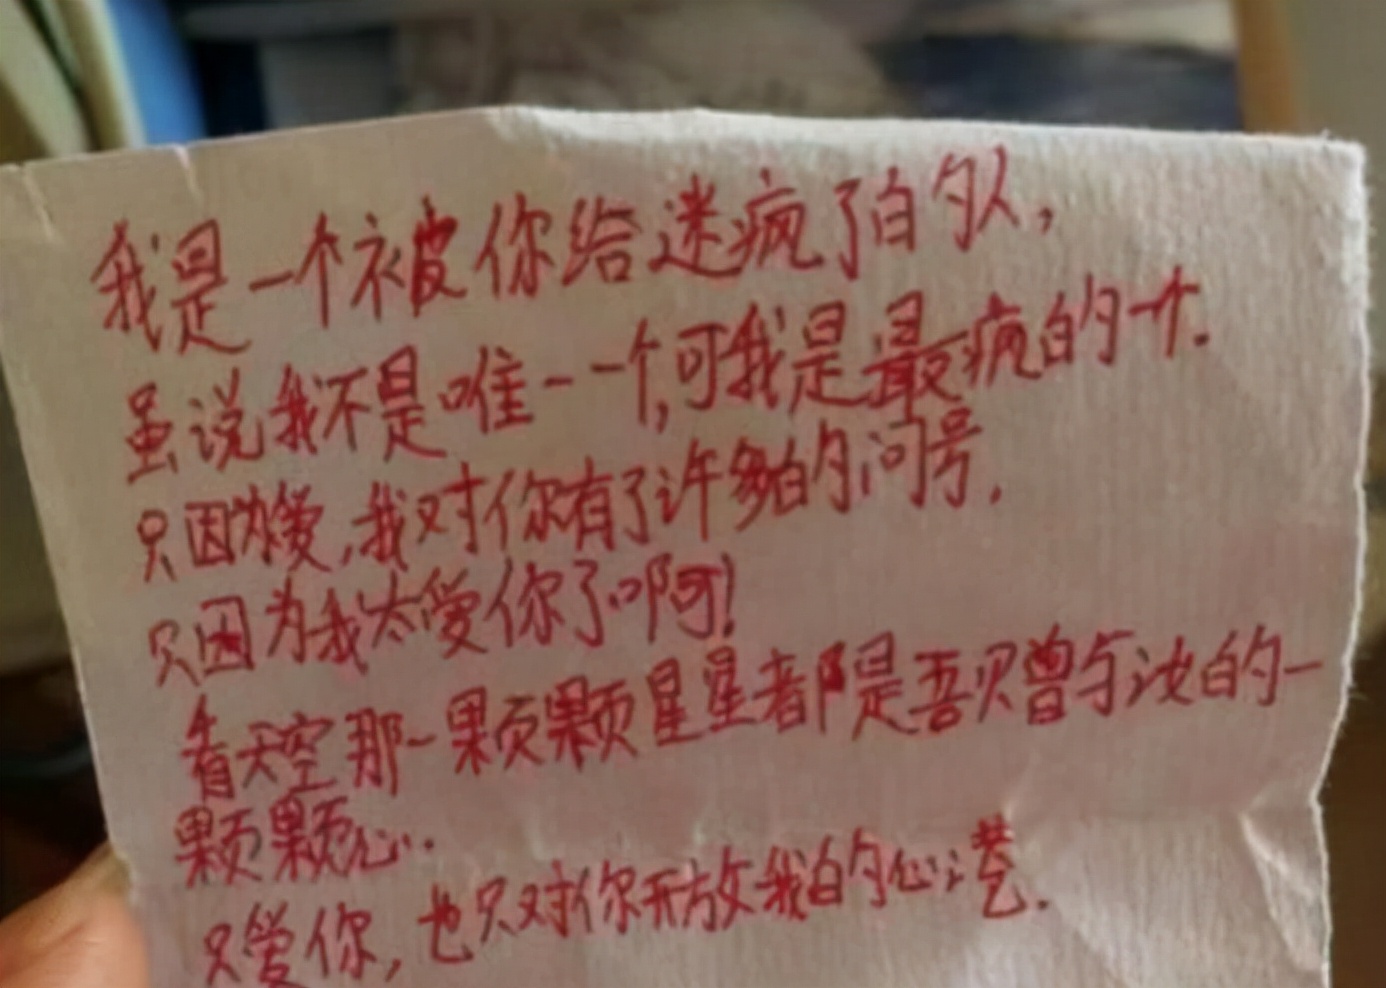 我是一个被你给迷疯了的人,
虽说我不是唯一一个,可我是最疯的一个.
只因为爱,我对你有了许多的问号,
只因为我太爱你了啊!
看天空那一颗颗星星都是吾贝曾与汝的一
颗颗心..
只爱你,也只对你开放我的心